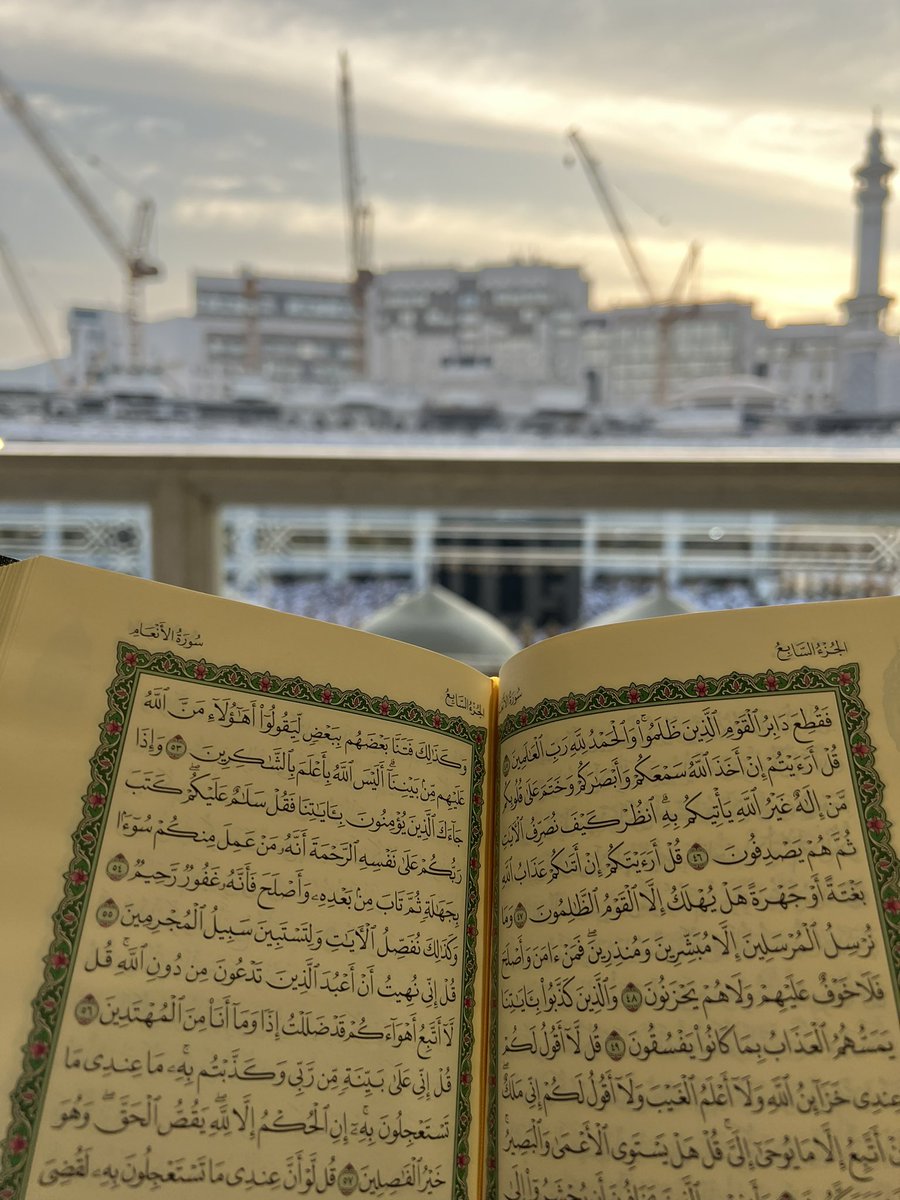 الجزء السابع
سورة الأ
فَقُطِعَ دَابِرُ ٱلْقَوْمِ ٱلَّذِينَ ظَلَمُوا۟ وَٱلْحَمْدُ لِلَّهِ رَبِّ ٱلْعَٰلَمِينَ
قُلْ أَرَءَيْتُمْ إِنْ أَخَذَ ٱللَّهُ سَمْعَكُمْ وَأَبْصَٰرَكُمْ وَخَتَمَ عَلَىٰ قُلُوبِكُم
مَّنْ إِلَٰهٌ غَيْرُ ٱللَّهِ يَأْتِيكُم بِهِ ۗ ٱنظُرْ كَيْفَ نُصَرِّفُ ٱلْءَايَٰتِ
ثُمَّ هُمْ يَصْدِفُونَ ٤٦ قُلْ أَرَءَيْتَكُمْ إِنْ أَتَىٰكُمْ عَذَابُ ٱللَّهِ
بَغْتَةً أَوْ جَهْرَةً هَلْ يُهْلَكُ إِلَّا ٱلْقَوْمُ ٱلظَّٰلِمُونَ ٤٧ وَمَا
نُرْسِلُ ٱلْمُرْسَلِينَ إِلَّا مُبَشِّرِينَ وَمُنذِرِينَ ۖ فَمَنْ ءَامَنَ وَأَصْلَحَ
فَلَا خَوْفٌ عَلَيْهِمْ وَلَا هُمْ يَحْزَنُونَ ٤٨ وَٱلَّذِينَ كَذَّبُوا۟ بِـَٔايَٰتِنَا
يَمَسُّهُمُ ٱلْعَذَابُ بِمَا كَانُوا۟ يَفْسُقُونَ ٤٩ قُل لَّآ أَقُولُ لَكُمْ
عِندِى خَزَآئِنُ ٱللَّهِ وَلَآ أَعْلَمُ ٱلْغَيْبَ وَلَآ أَقُولُ لَكُمْ إِنِّى مَلَكٌ ۖ
إِنْ أَتَّبِعُ إِلَّا مَا يُوحَىٰٓ إِلَىَّ ۚ قُلْ هَلْ يَسْتَوِى ٱلْأَعْمَىٰ وَٱلْبَصِيرُ ۚ
سورة الأنعام
الجزء السابع
وَكَذَٰلِكَ فَتَنَّا بَعْضَهُم بِبَعْضٍ لِّيَقُولُوٓا۟ أَهَٰٓؤُلَآءِ مَنَّ ٱللَّهُ
عَلَيْهِم مِّنۢ بَيْنِنَآ ۗ أَلَيْسَ ٱللَّهُ بِأَعْلَمَ بِٱلشَّٰكِرِينَ ٥٣ وَإِذَا
جَآءَكَ ٱلَّذِينَ يُؤْمِنُونَ بِـَٔايَٰتِنَا فَقُلْ سَلَٰمٌ عَلَيْكُمْ ۖ كَتَبَ
رَبُّكُمْ عَلَىٰ نَفْسِهِ ٱلرَّحْمَةَ ۖ أَنَّهُۥ مَنْ عَمِلَ مِنكُمْ سُوٓءًۢا
بِجَهَٰلَةٍ ثُمَّ تَابَ مِنۢ بَعْدِهِۦ وَأَصْلَحَ فَأَنَّهُۥ غَفُورٌ رَّحِيمٌ ٥٤
وَكَذَٰلِكَ نُفَصِّلُ ٱلْءَايَٰتِ وَلِتَسْتَبِينَ سَبِيلُ ٱلْمُجْرِمِينَ ٥٥
قُلْ إِنِّى نُهِيتُ أَنْ أَعْبُدَ ٱلَّذِينَ تَدْعُونَ مِن دُونِ ٱللَّهِ ۚ قُل
لَّآ أَتَّبِعُ أَهْوَآءَكُمْ ۙ قَدْ ضَلَلْتُ إِذًا وَمَآ أَنَا۠ مِنَ ٱلْمُهْتَدِينَ ٥٦
قُلْ إِنِّى عَلَىٰ بَيِّنَةٍ مِّن رَّبِّى وَكَذَّبْتُم بِهِۦ ۚ مَا عِندِى مَا
تَسْتَعْجِلُونَ بِهِۦٓ ۚ إِنِ ٱلْحُكْمُ إِلَّا لِلَّهِ ۖ يَقُصُّ ٱلْحَقَّ ۖ وَهُوَ
خَيْرُ ٱلْفَٰصِلِينَ ٥٧ قُل لَّوْ أَنَّ عِندِى مَا تَسْتَعْجِلُونَ بِهِۦ لَقُضِىَ